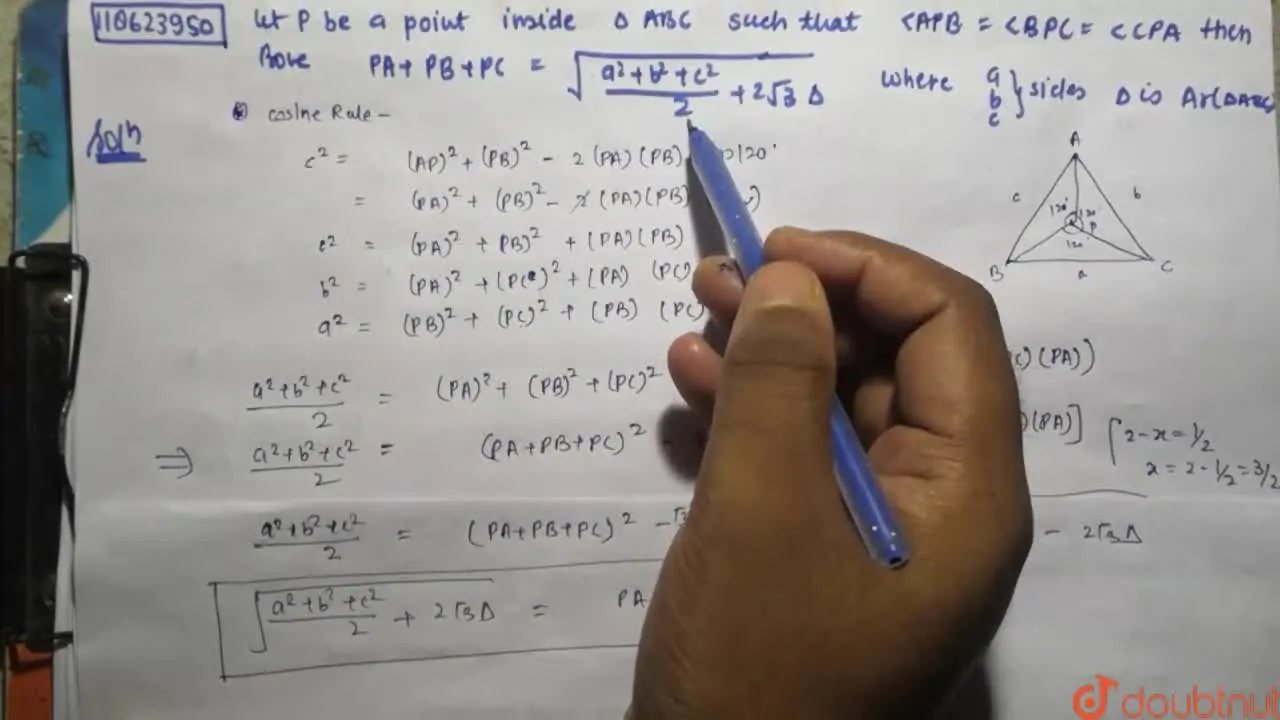 110623950 Let P be a point inside Δ ABC such that <APB = <BPC = <CPA then
Prove PA + PB + PC = √(a²+b²+c²/2 + 2√3 Δ) where a b c } sides Δ is Ar(ΔABC)
Solⁿ
cosine Rule -
c² = (AP)² + (PB)² - 2 (PA) (PB) 120°
= (PA)² + (PB)² - 2 (PA) (PB) )
c² = (PA)² + PB)² + (PA) (PB)
b² = (PA)² + (PC)² + (PA) (PC)
a² = (PB)² + (PC)² + (PB) (PC)
a²+b²+c²/2 = (PA)² + (PB)² + (PC)² ) (PA))
⇒ a²+b²+c²/2 = (PA+PB+PC)² - ) (PA)] [2-x = 1/2
x = 2-1/2 = 3/2
a²+b²+c²/2 = (PA+PB+PC)² - - 2√3Δ
√(a²+b²+c²/2 + 2√3Δ) = PA
A
c
b
120°
120°
P
120°
B
a
C
doubtnut